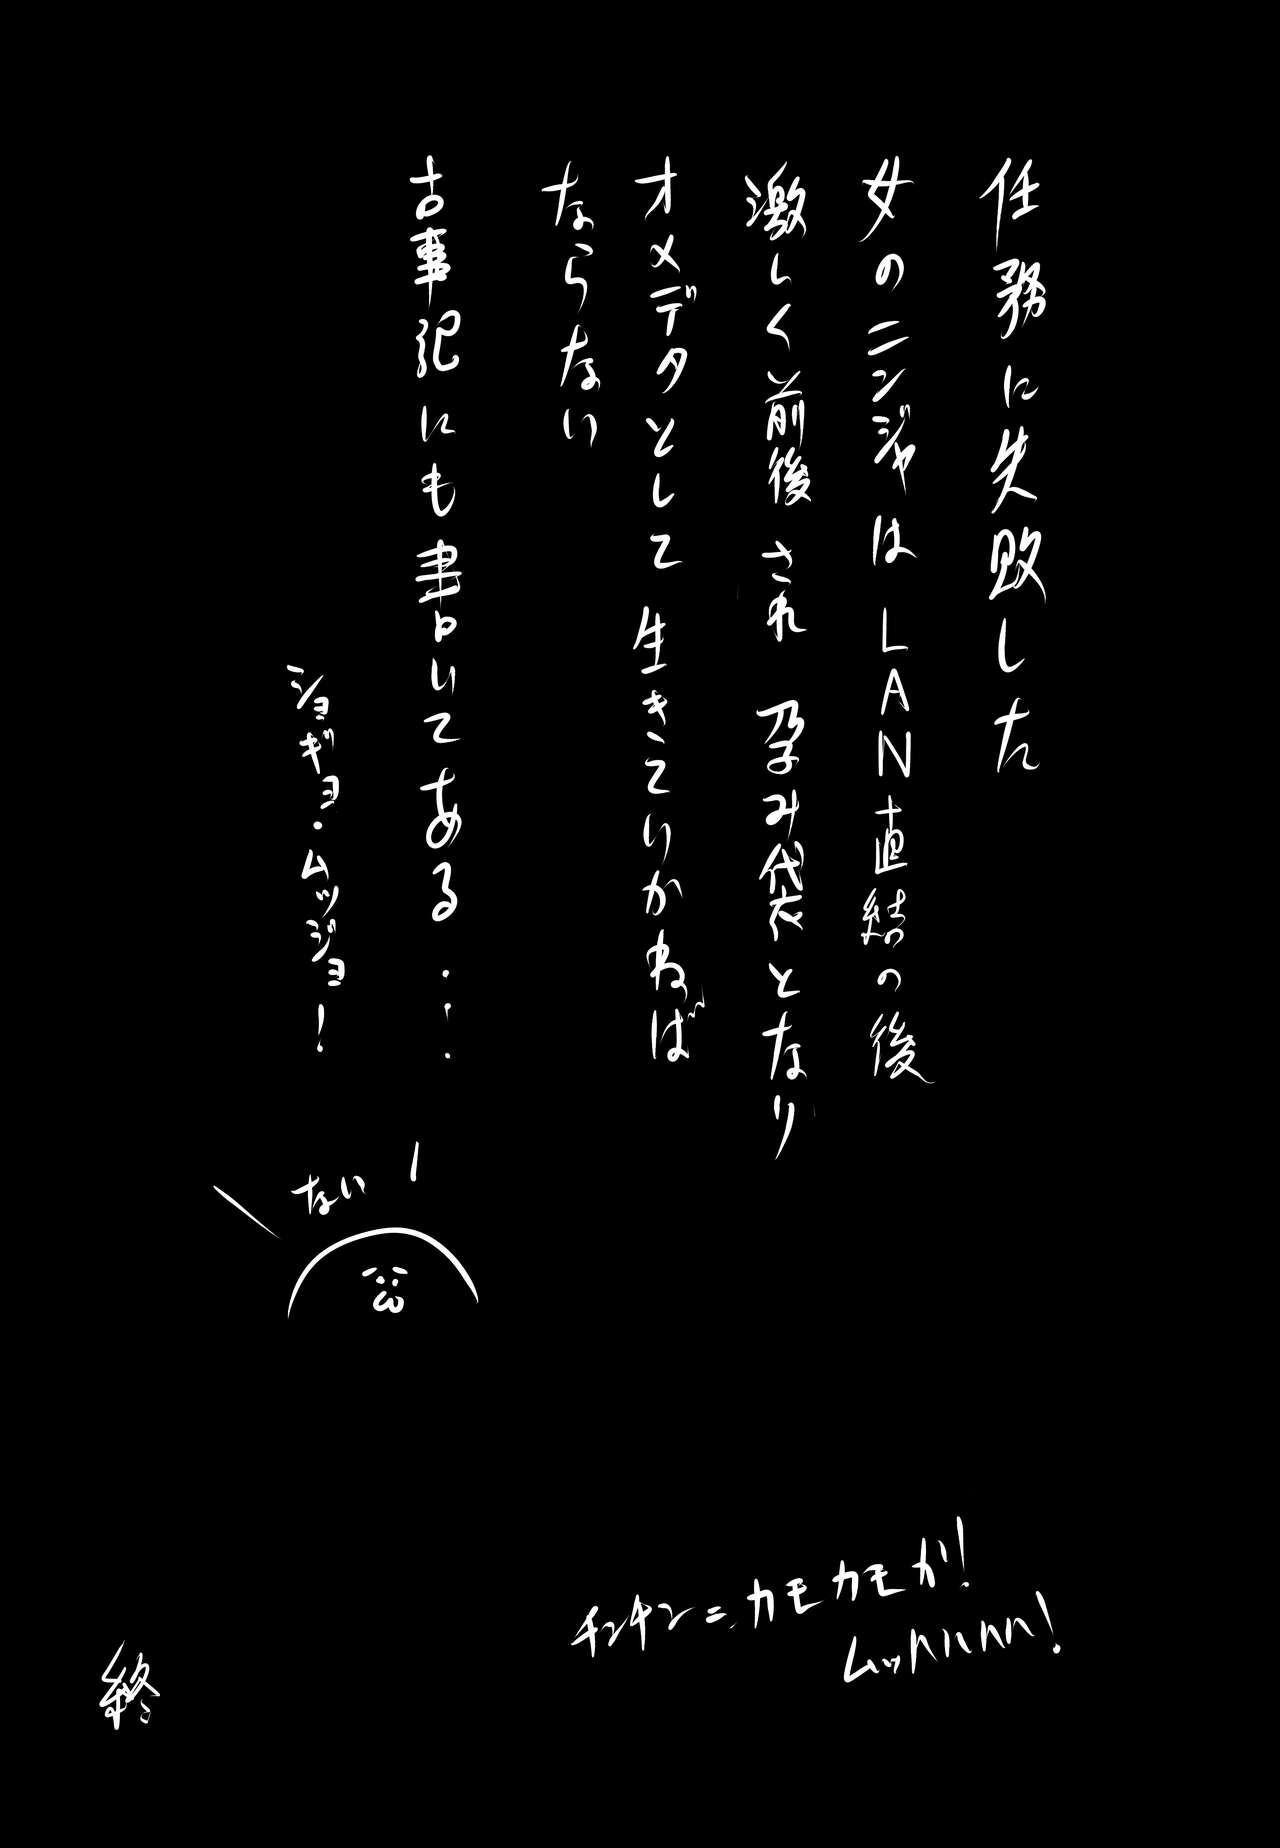 任務に失敗した
女のニンジャはLAN直結の後
激しく前後され 孕み袋となり
オメデタとして生きていかねば
ならない
古事記にも書いてある・・・
ショギョ・ムッジョ!
ない
チンチンニ、カモカモが!
ムッハハハハ!
終